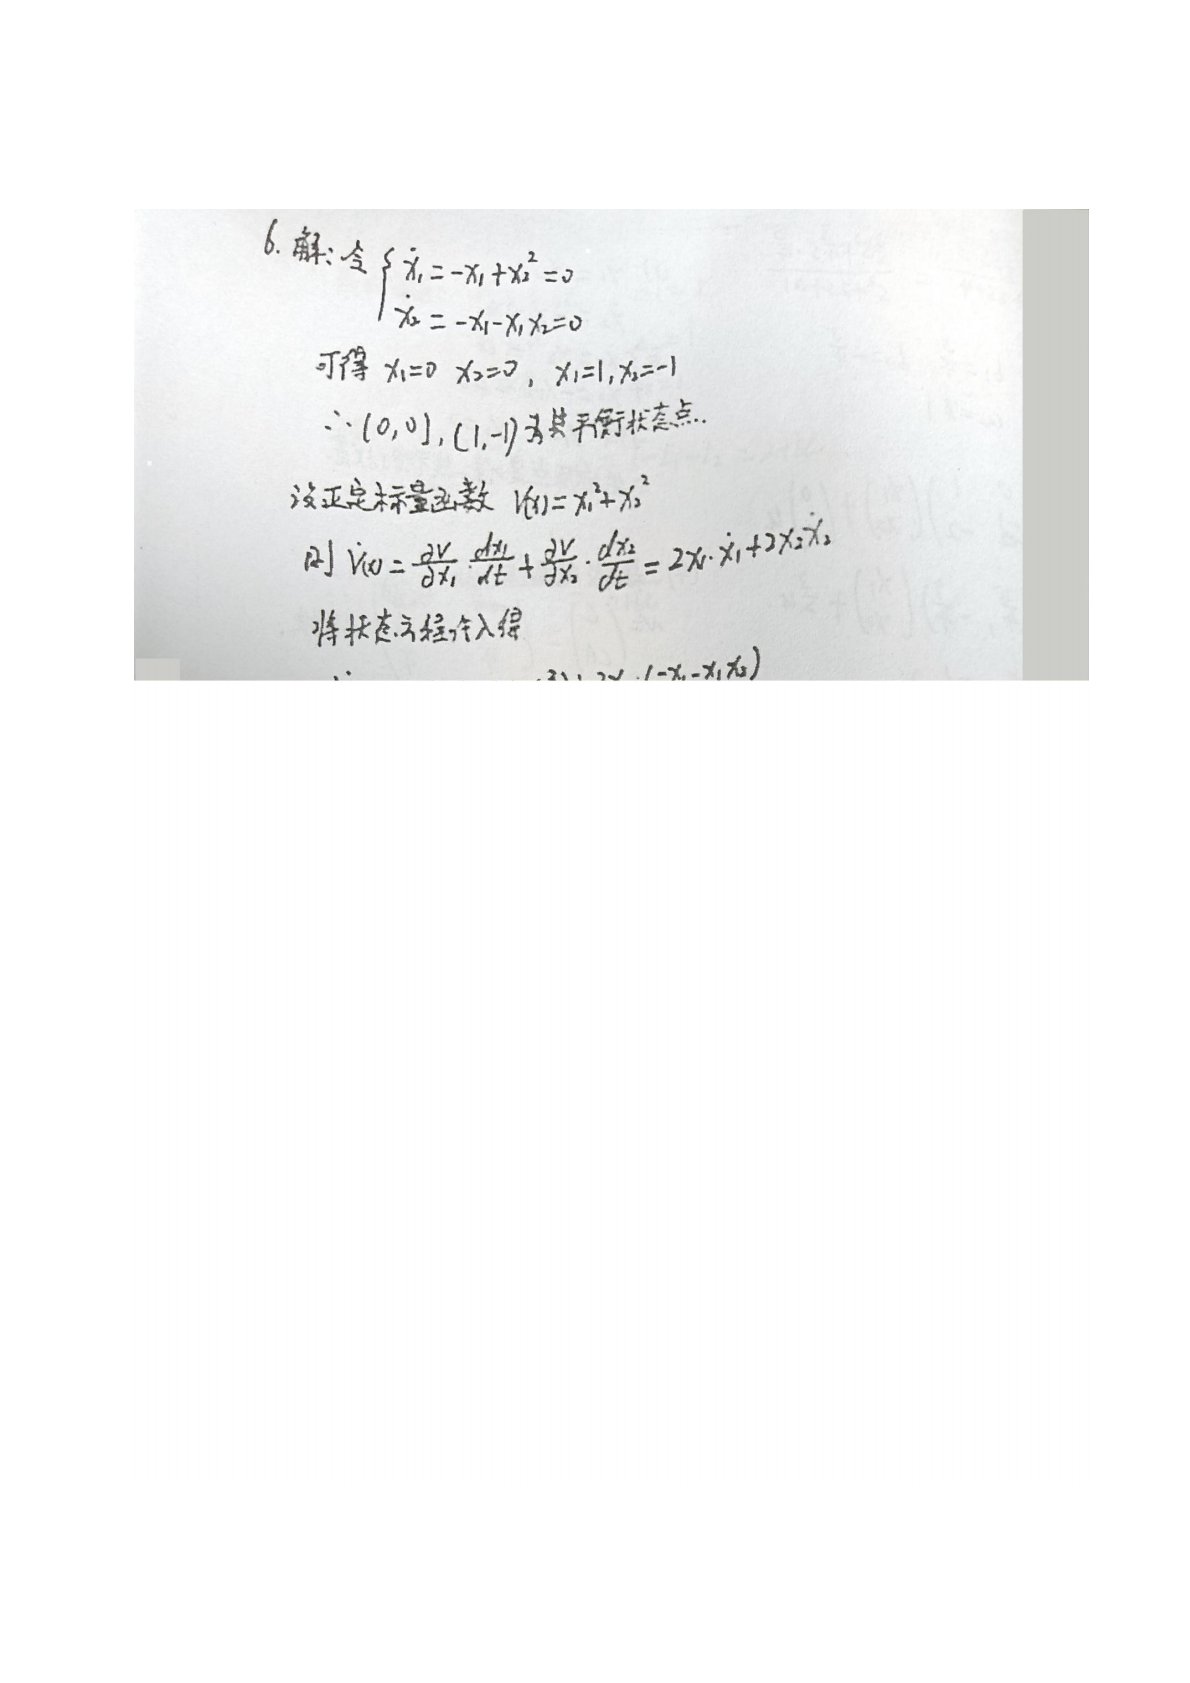 6. 解：令 { ẋ₁ = -x₁ + x₂² = 0
ẋ₂ = -x₁ - x₁x₂ = 0
可得 x₁=0 x₂=0, x₁=1, x₂=-1
∴ (0,0), (1,-1) 为其平衡状态点.
设正定标量函数 V(x) = x₁² + x₂²
则 V̇(x) = ∂V/∂x₁ · dx₁/dt + ∂V/∂x₂ · dx₂/dt = 2x₁·ẋ₁ + 2x₂ẋ₂
将状态方程代入得
(-x₁-x₁x₂)